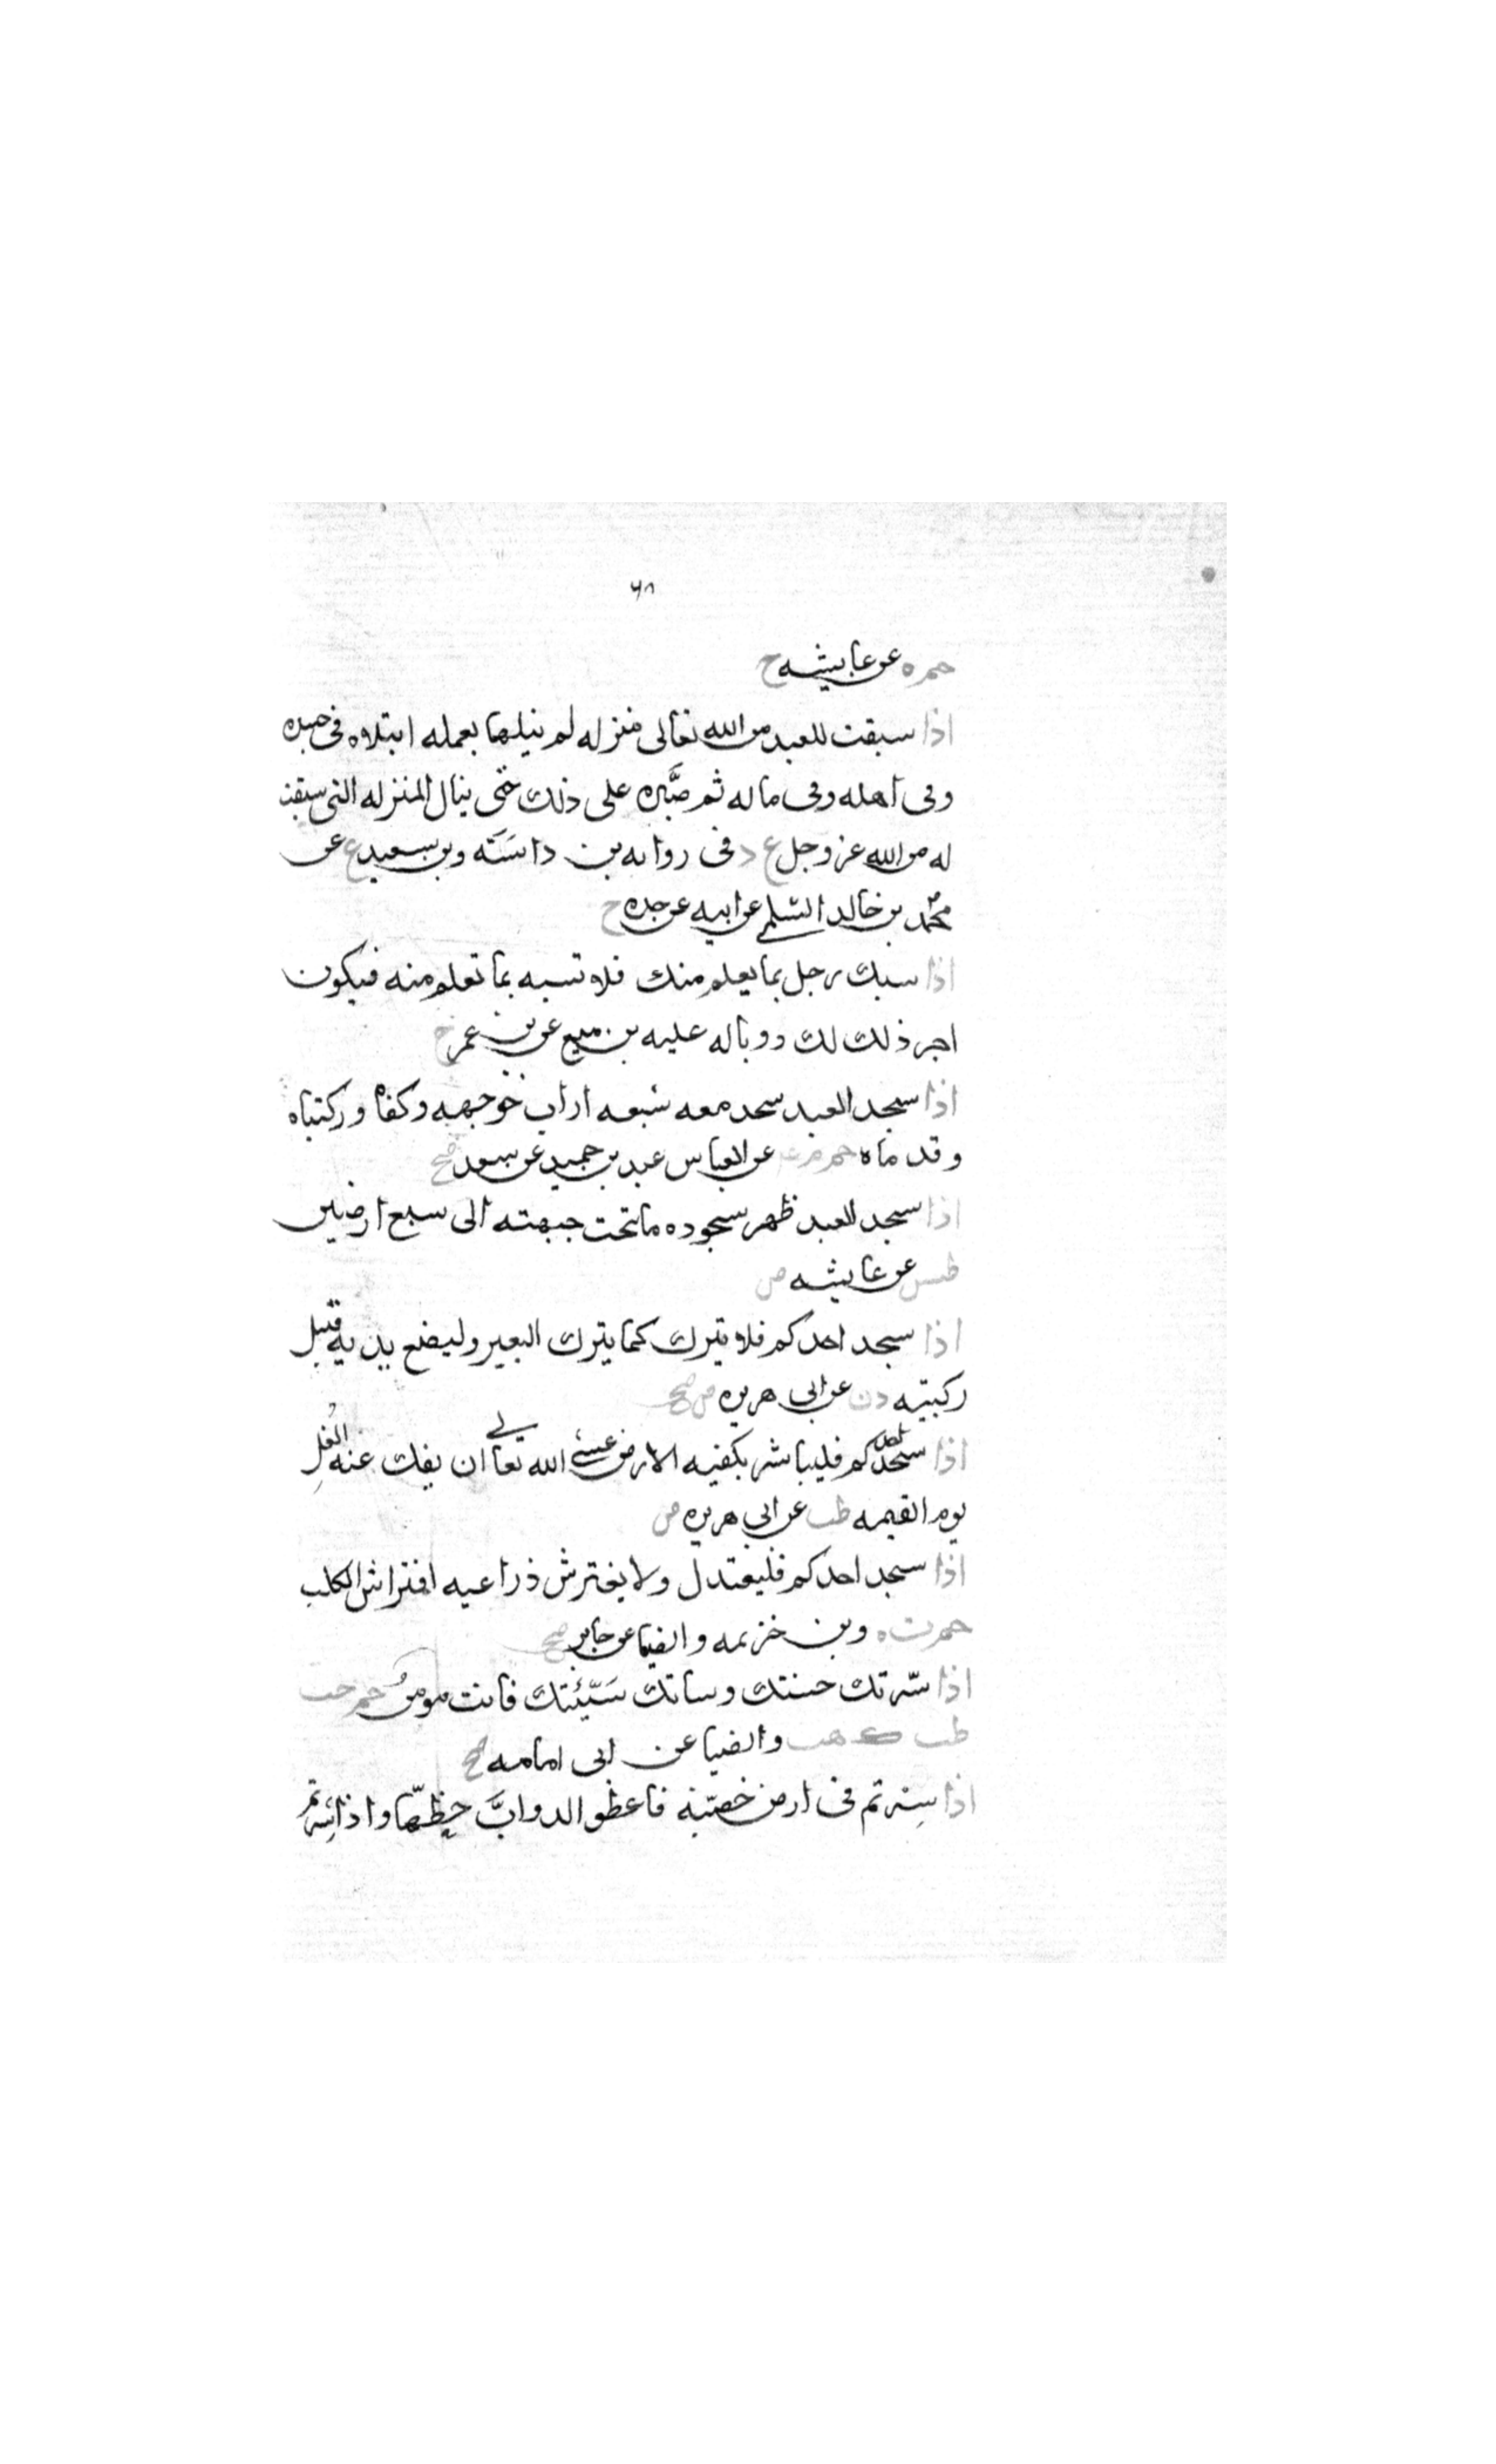 ٦٨
حم ه عن عايشه ح
اذا سبقت للعبد من الله تعالى منزله لم ينلها بعمله ابتلاه فى جسده
وفى اهله وفى ماله ثم صبَّره على ذلك حتى ينال المنزله التى سبقت
له من الله عز وجل ع د فى روايه بن داسَته وبن سعيد ع عن
محمد بن خالد السلمي عن ابيه عن جده ح
اذا سبك رجل بما يعلم منك فلا تسبه بما تعلم منه فيكون
اجر ذلك لك ووباله عليه بن منيع عن بن عمر ح
اذا سجد العبد سجد معه سبعه اراب وجهه وكفاه وركبتاه
وقدماه حم م عن العباس عبد بن حميد عن سعد صح
اذا سجد العبد ظهر سجوده ما تحت جبهته الى سبع ارضين
طس عن عايشه ض
اذا سجد احدكم فلا يبرك كما يبرك البعير وليضع يديه قبل
ركبتيه د ن عن ابى هريره صح
اذا سجد احدكم فليباشر بكفيه الارض عسى الله تعالى ان يفك عنه الغل
يوم القيمه طب عن ابي هريره ض
اذا سجد احدكم فليعتدل ولا يفترش ذراعيه افتراش الكلب
حم ت ه وبن خزيمه والضيا عن جابر صح
اذا سرّتك حسنتك وساتك سَيّئتك فانت مومن حم حب
طب ك هب والضيا عن ابى امامه صح
اذا سِرتم فى ارض خصبة فاعطو الدوابَّ حظّها واذا سِرتم